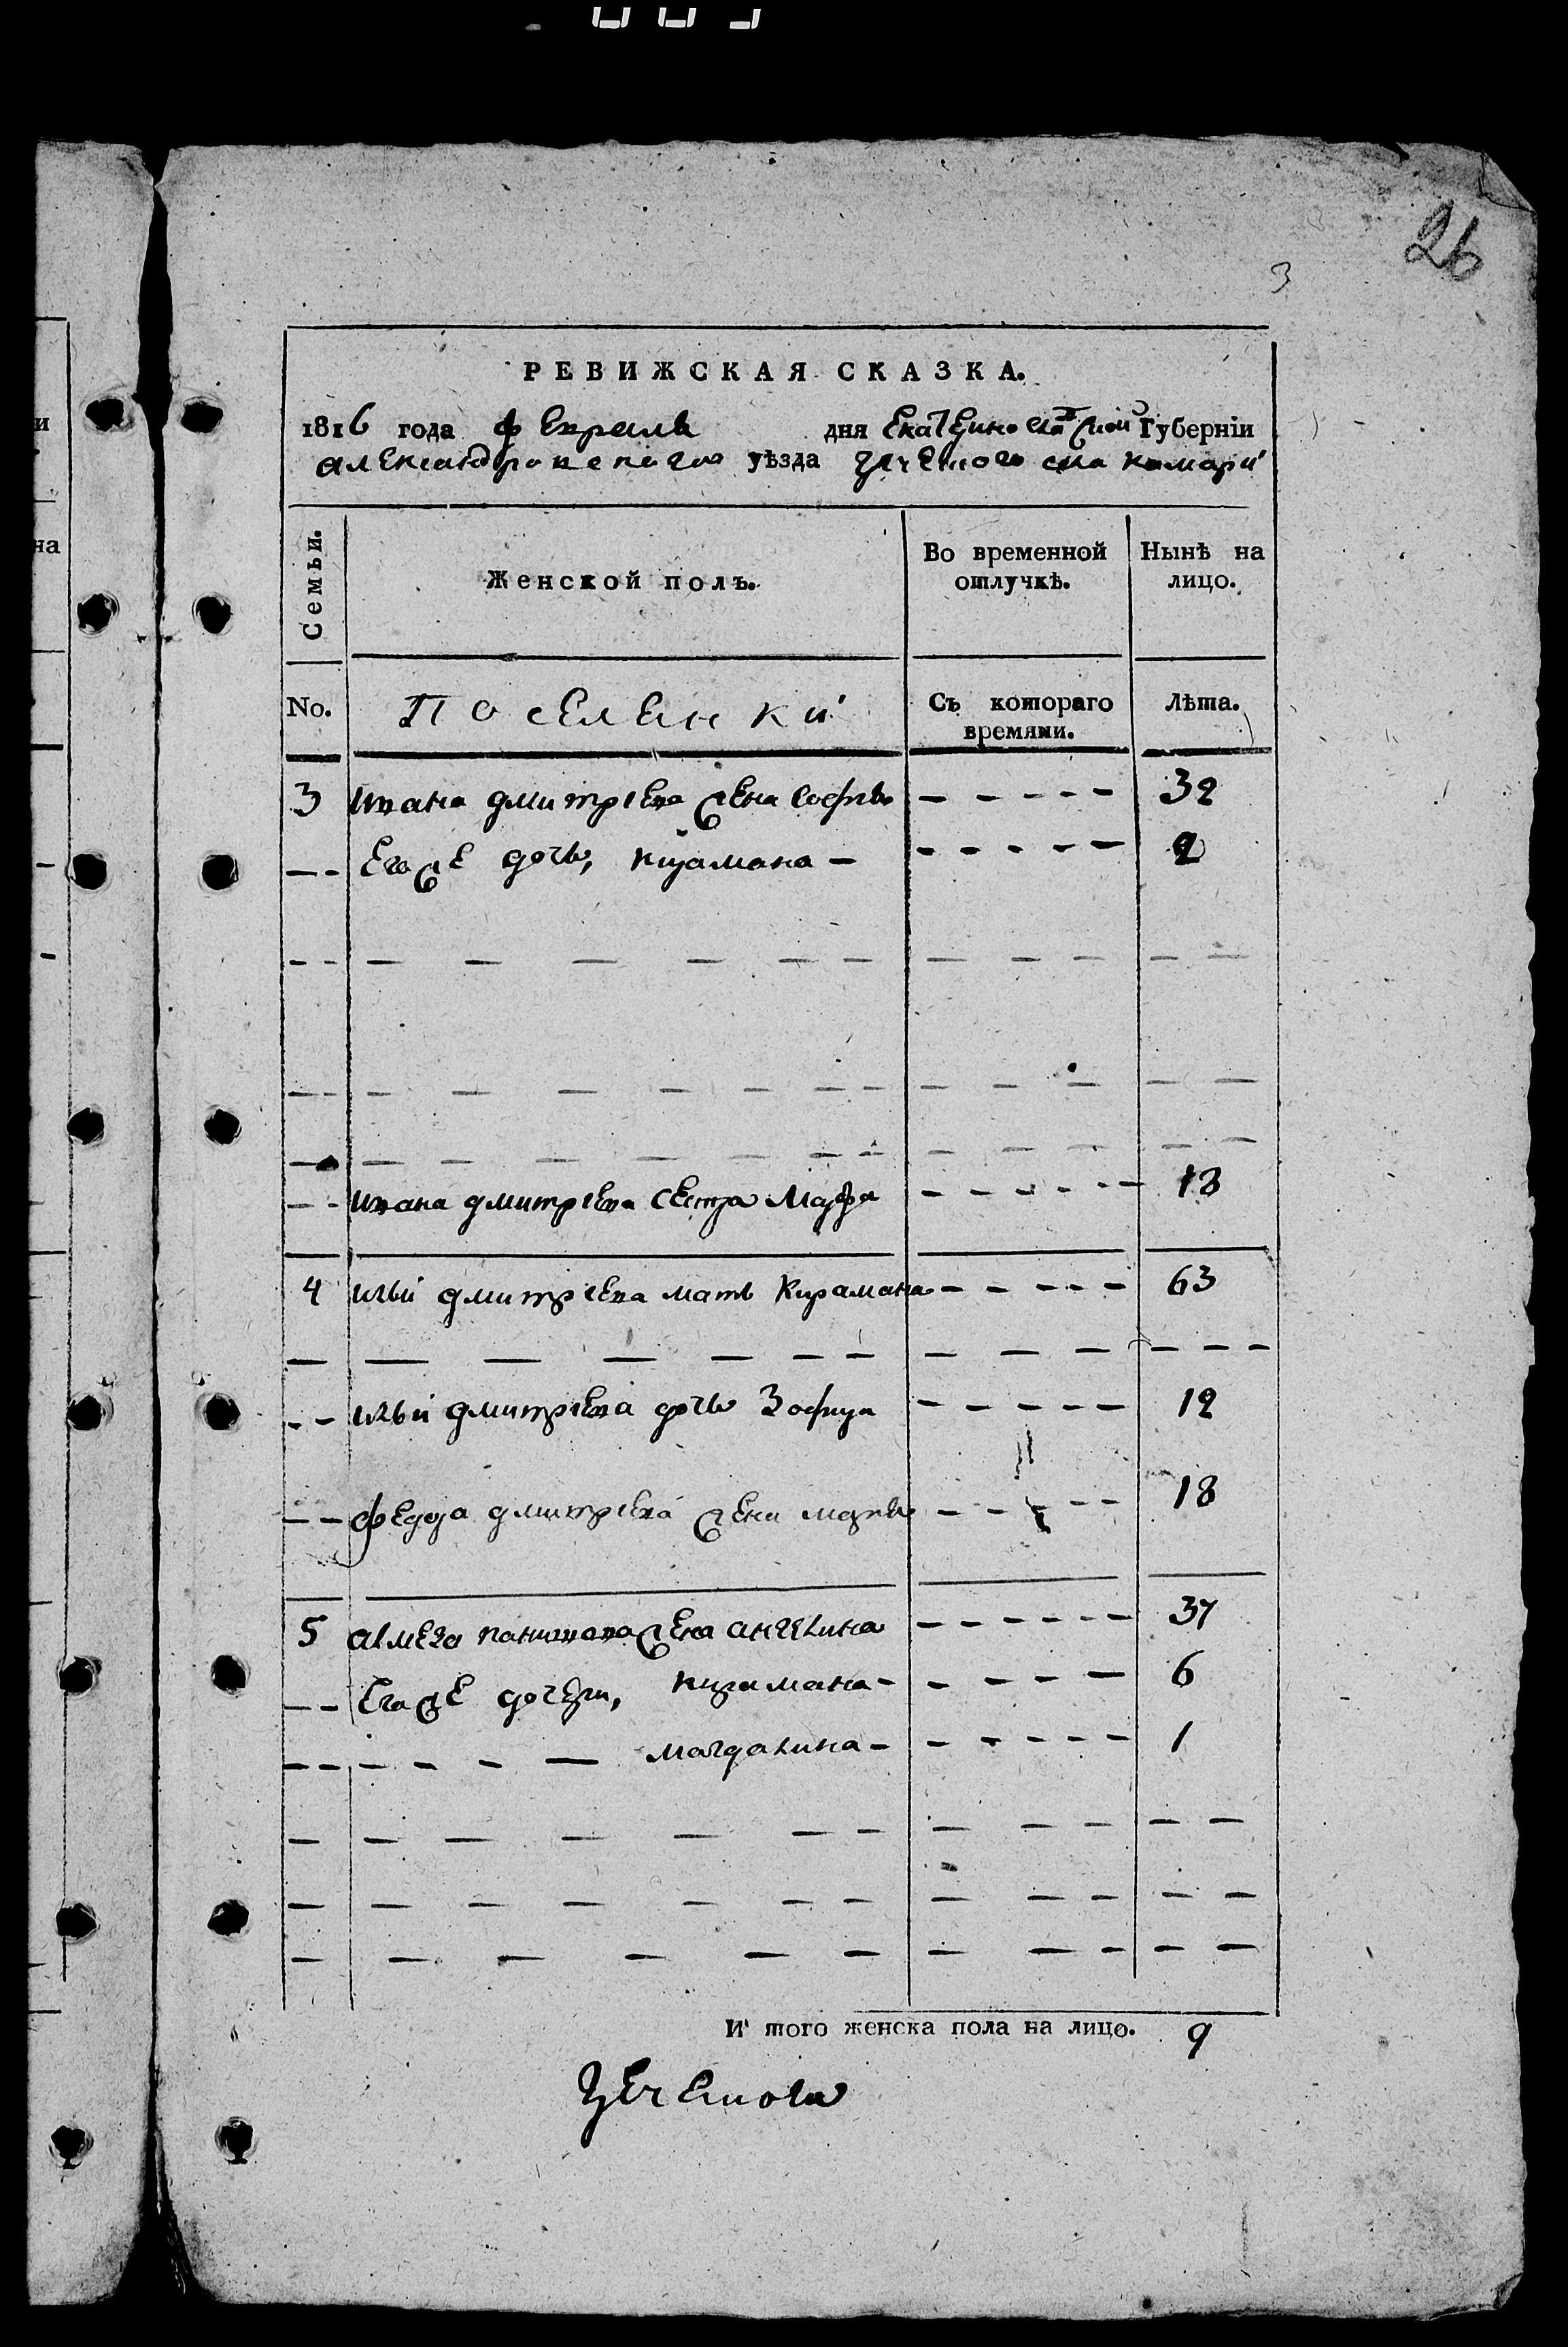 26
3
РЕВИЖСКАЯ СКАЗКА.
1816 года февраля дня Екатеринославской Губерніи
александровскаго уѣзда греческого села комары
Семьи.
Женской полъ.
Во временной отлучкѣ.
Нынѣ на лицо.
No.
Поселенки
Съ котораго времяни.
Лѣта.
3 ивана дмитріева жена софья - - - - - 32
- - Его же дочь, кирамана - - - - - - 2
- - ивана дмитріева сестра Марфа - - - - - - 13
4 ильи дмитріева мать Кирамана - - - - - 63
- - ильи дмитріева дочь Зофира - - - - - 12
- - федора дмитріева жена марья - - - - - 18
5 жена ангелина - - - - - - 37
- - Его же дочери, кирамана - - - - - 6
- - - - - - магдалина - - - - - - 1
И того женска пола на лицо. 9